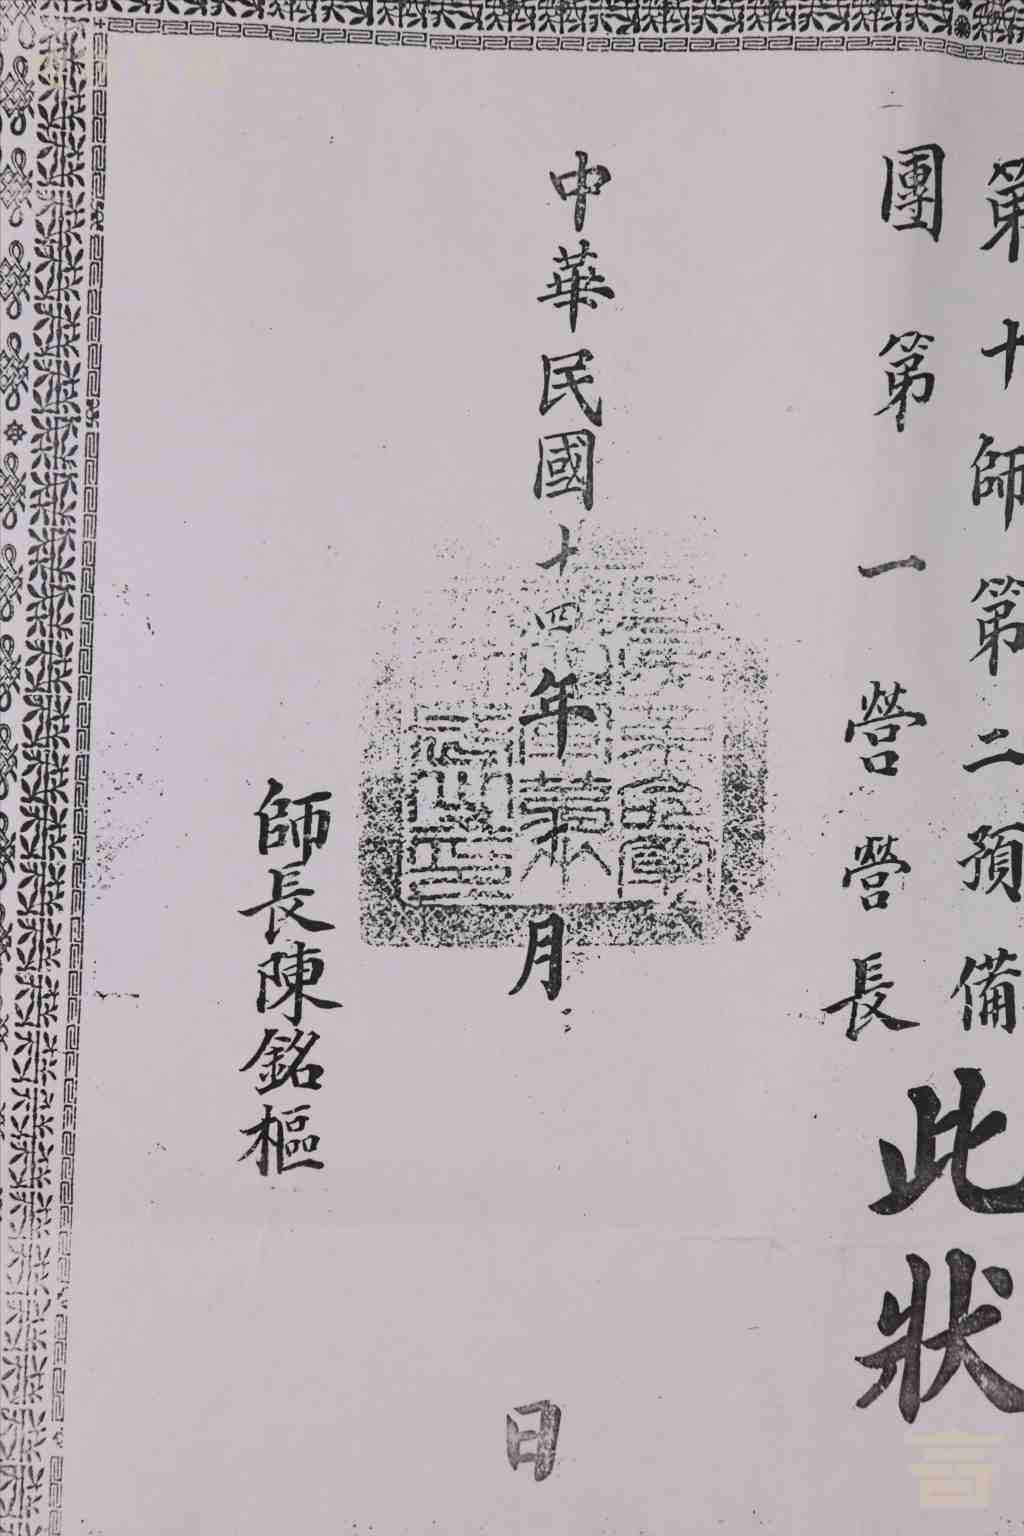 第十師第二預備
團第一營營長
此狀
中華民國十四年月日
師長陳銘樞